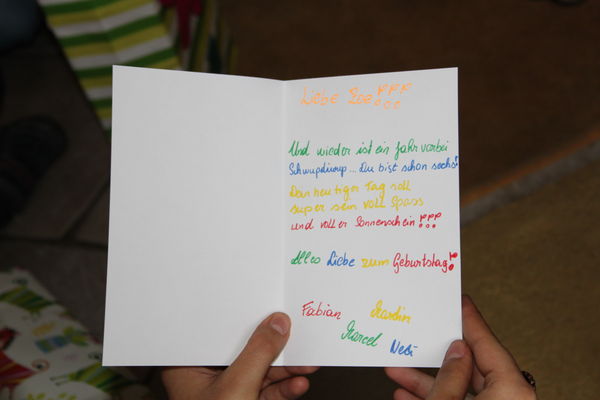 Liebe Zoe!!!
Und wieder ist ein Jahr vorbei
Schwupdiwup... Du bist schon sechs!
Dein heutiger Tag soll
super sein voll Spass
und voller Sonnenschein!!!
Alles Liebe zum Geburtstag!
Fabian
Marcel
Nebi